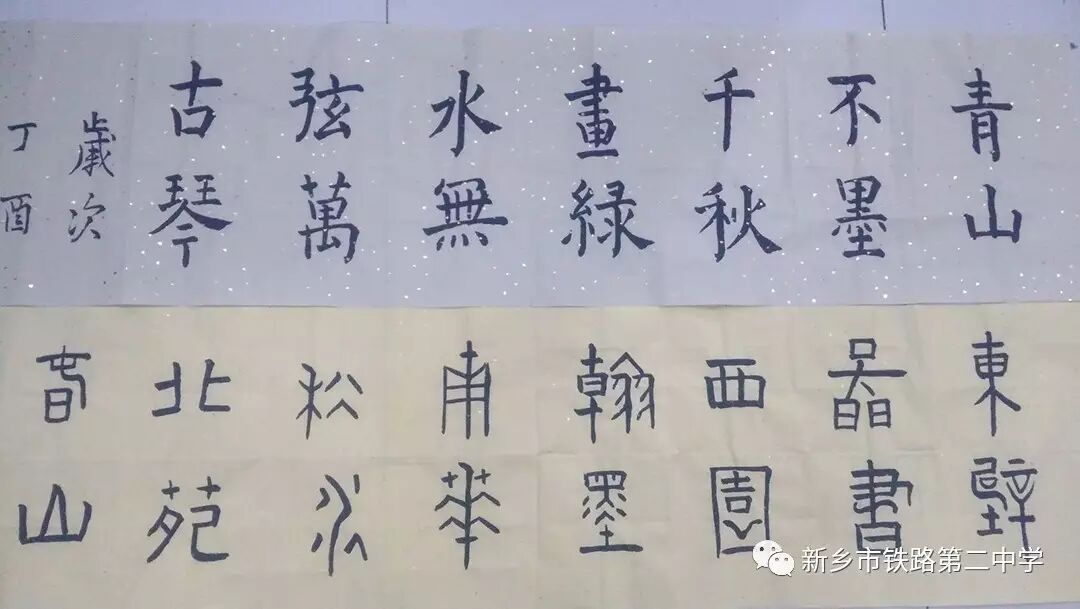 青山
不墨
千秋
畫緑
水無
弦萬
古琴
歲次
丁酉
東壁
書
西園
翰墨
南華
秋水
北苑
春山
新乡市铁路第二中学